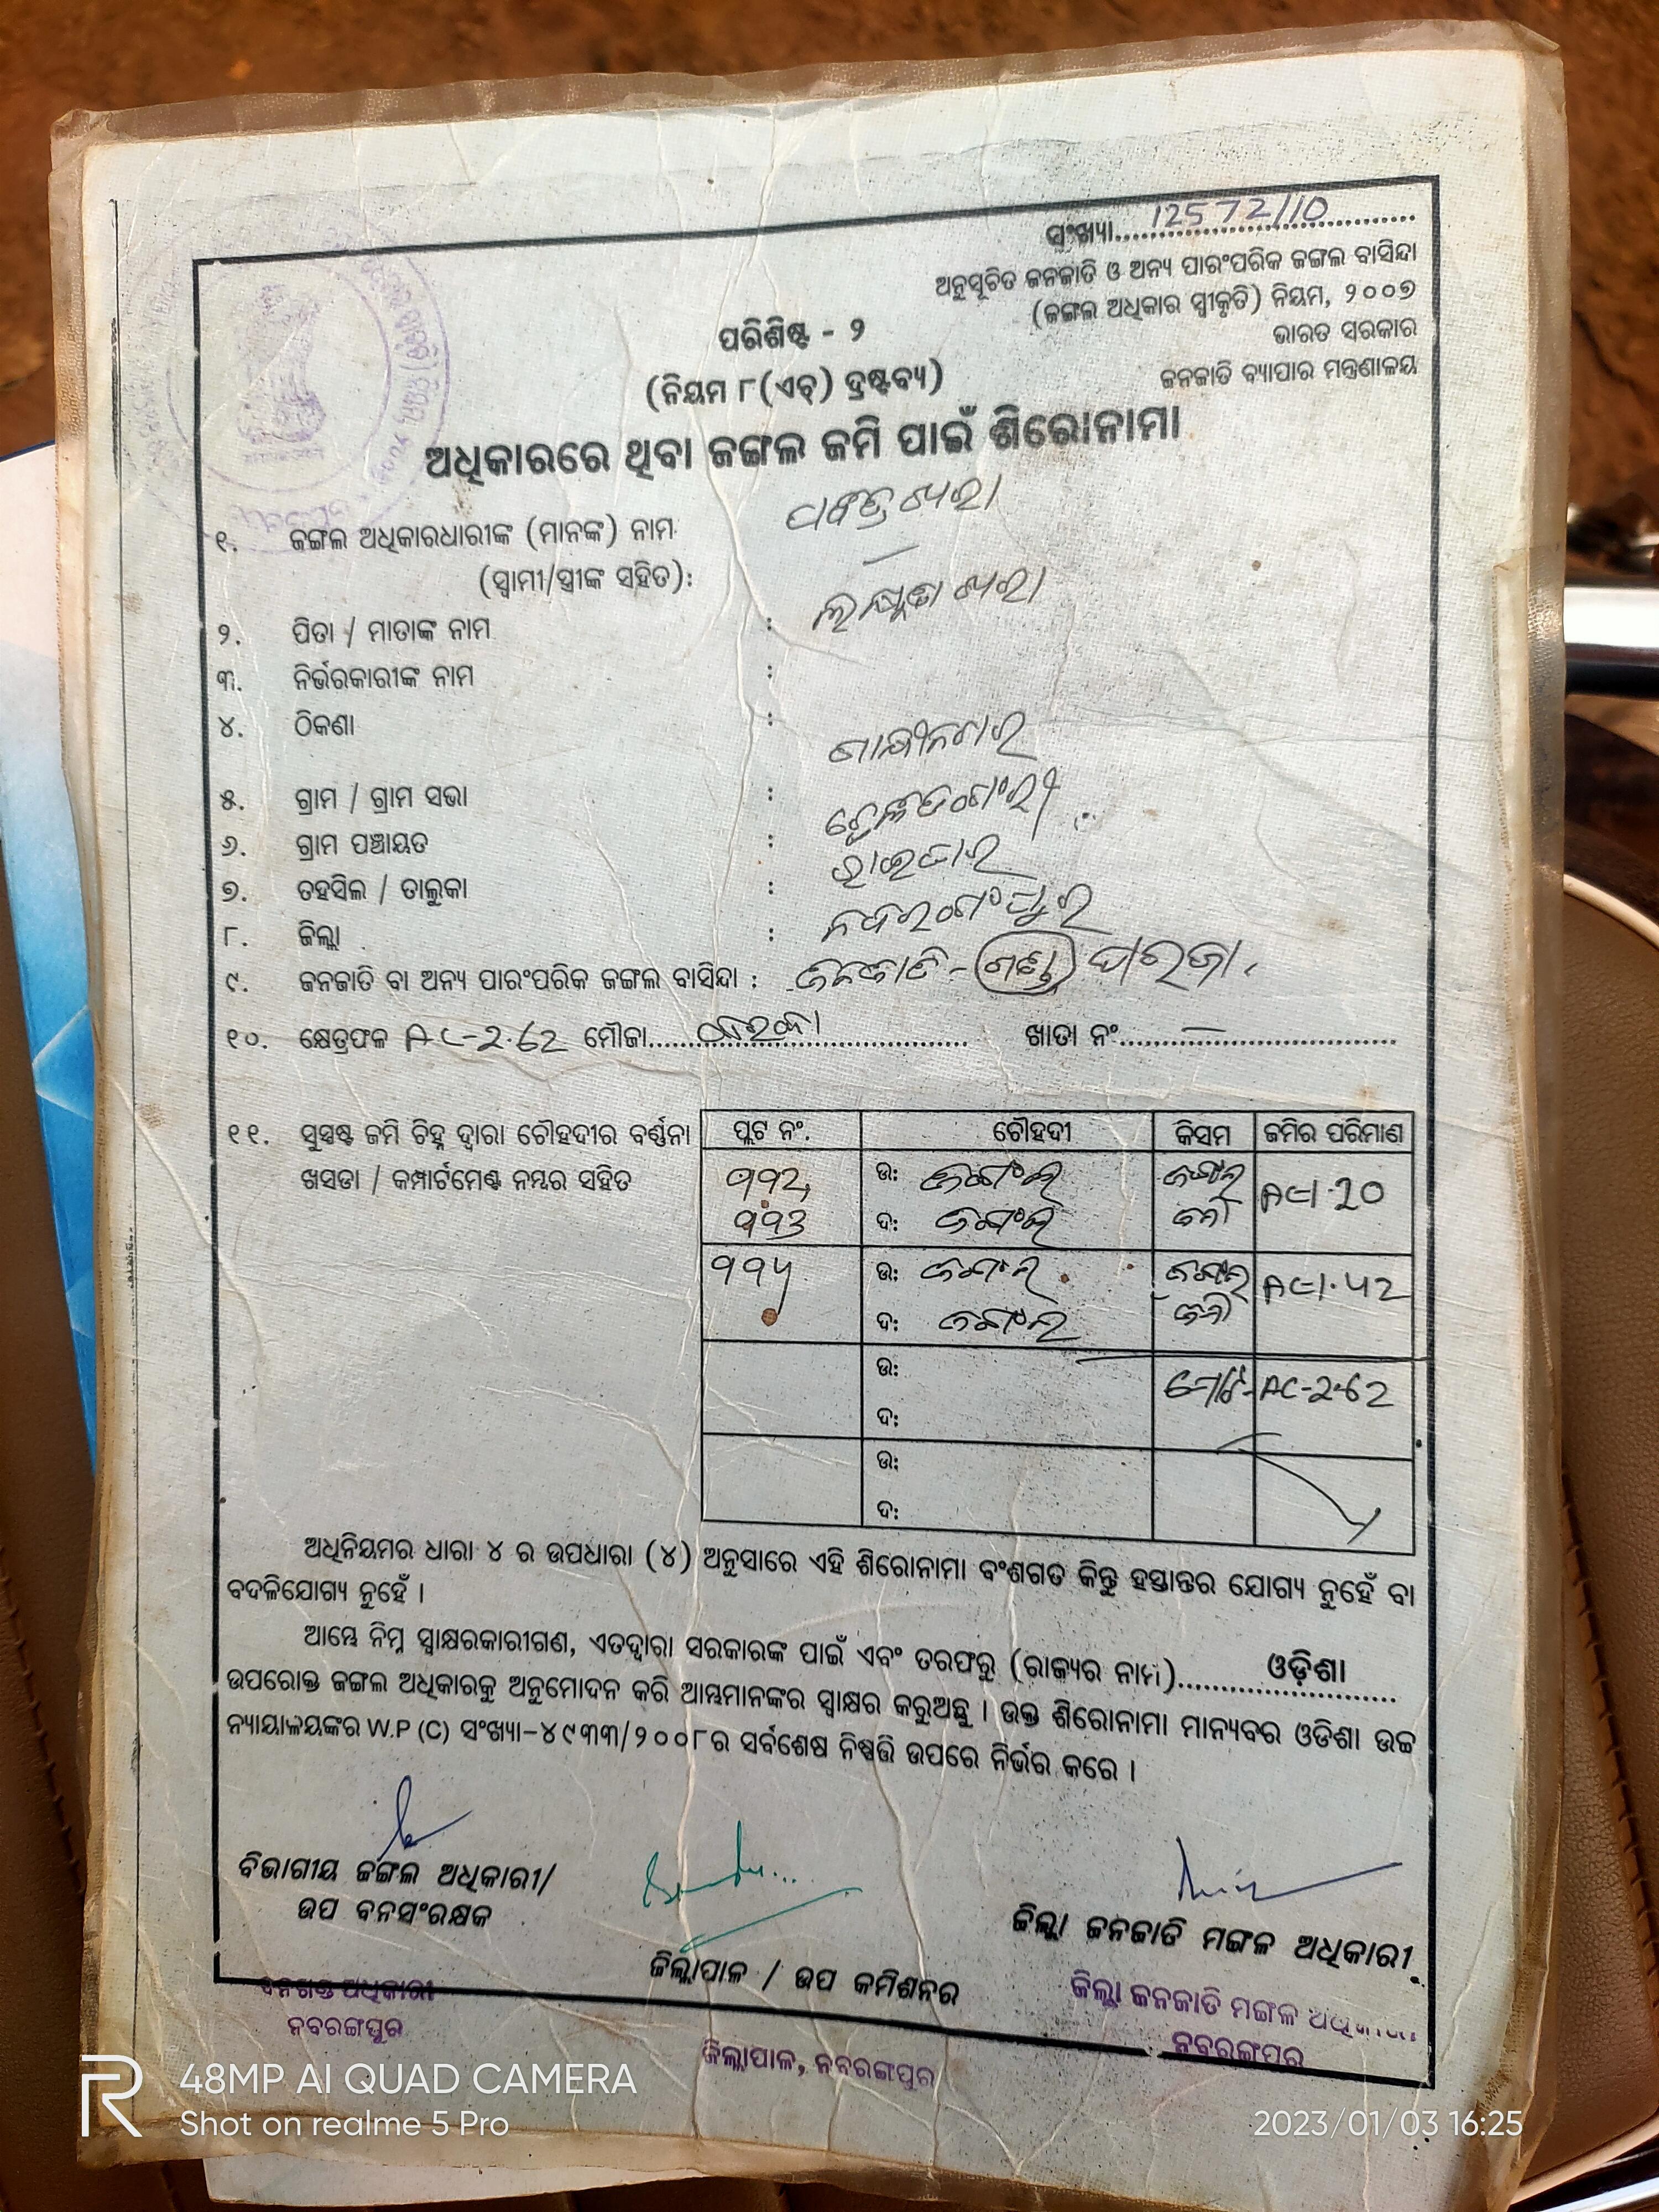 ସଂଖ୍ୟା 12572/10
ଅନୁସୂଚିତ ଜନଜାତି ଓ ଅନ୍ୟ ପାରଂପରିକ ଜଙ୍ଗଲ ବାସିନ୍ଦା
(ଜଙ୍ଗଲ ଅଧିକାର ସ୍ୱୀକୃତି) ନିୟମ, ୨୦୦୭
ଭାରତ ସରକାର
ଜନଜାତି ବ୍ୟାପାର ମନ୍ତ୍ରଣାଳୟ
ପରିଶିଷ୍ଟ - ୨
(ନିୟମ ୮(ଏଚ୍) ଦ୍ରଷ୍ଟବ୍ୟ)
ଅଧିକାରରେ ଥିବା ଜଙ୍ଗଲ ଜମି ପାଇଁ ଶିରୋନାମା
୧. ଜଙ୍ଗଲ ଅଧିକାରଧାରୀଙ୍କ (ମାନଙ୍କ) ନାମ
(ସ୍ୱାମୀ/ସ୍ତ୍ରୀଙ୍କ ସହିତ):
୨. ପିତା / ମାତାଙ୍କ ନାମ :
୩. ନିର୍ଭରକାରୀଙ୍କ ନାମ :
୪. ଠିକଣା :
୫. ଗ୍ରାମ / ଗ୍ରାମ ସଭା : ଗାନ୍ଧୀନଗର
୬. ଗ୍ରାମ ପଞ୍ଚାୟତ :
୭. ତହସିଲ / ତାଲୁକା : ରାଇଘର
୮. ଜିଲ୍ଲା : ନବରଂଗପୁର
୯. ଜନଜାତି ବା ଅନ୍ୟ ପାରଂପରିକ ଜଙ୍ଗଲ ବାସିନ୍ଦା : ଜନଜାତି - ଗଣ୍ଡ ପରଜା
୧୦. କ୍ଷେତ୍ରଫଳ AC-2.62 ମୌଜା ଖାତା ନଂ. —
୧୧. ସୁସ୍ପଷ୍ଟ ଜମି ଚିହ୍ନ ଦ୍ୱାରା ଚୌହଦୀର ବର୍ଣ୍ଣନା
ଖସଡା / କମ୍ପାର୍ଟମେଣ୍ଟ ନମ୍ବର ସହିତ
ପ୍ଲଟ ନଂ. ଚୌହଦୀ କିସମ ଜମିର ପରିମାଣ
ଉ: ଜଙ୍ଗଲ ଜଙ୍ଗଲ
ଦ: ଜଙ୍ଗଲ ଜମି
ଉ: ଜଙ୍ଗଲ ଜଙ୍ଗଲ
ଦ: ଜଙ୍ଗଲ ଜମି
ଉ: ମୋଟ- AC-2.62
ଦ:
ଉ:
ଦ:
ଅଧିନିୟମର ଧାରା ୪ ର ଉପଧାରା (୪) ଅନୁସାରେ ଏହି ଶିରୋନାମା ବଂଶଗତ କିନ୍ତୁ ହସ୍ତାନ୍ତର ଯୋଗ୍ୟ ନୁହେଁ ବା
ବଦଳିଯୋଗ୍ୟ ନୁହେଁ ।
ଆମ୍ଭେ ନିମ୍ନ ସ୍ୱାକ୍ଷରକାରୀଗଣ, ଏତଦ୍ୱାରା ସରକାରଙ୍କ ପାଇଁ ଏବଂ ତରଫରୁ (ରାଜ୍ୟର ନାମ) ଓଡ଼ିଶା
ଉପରୋକ୍ତ ଜଙ୍ଗଲ ଅଧିକାରକୁ ଅନୁମୋଦନ କରି ଆମ୍ଭମାନଙ୍କର ସ୍ୱାକ୍ଷର କରୁଅଛୁ । ଉକ୍ତ ଶିରୋନାମା ମାନ୍ୟବର ଓଡିଶା ଉଚ୍ଚ
ନ୍ୟାୟାଳୟଙ୍କର W.P (C) ସଂଖ୍ୟା-୪୯୩୩/୨୦୦୮ର ସର୍ବଶେଷ ନିଷ୍ପତ୍ତି ଉପରେ ନିର୍ଭର କରେ ।
ବିଭାଗୀୟ ଜଙ୍ଗଲ ଅଧିକାରୀ/
ଉପ ବନସଂରକ୍ଷକ
ଜିଲ୍ଲାପାଳ / ଉପ କମିଶନର
ଜିଲ୍ଲା ଜନଜାତି ମଙ୍ଗଳ ଅଧିକାରୀ
ବନଖଣ୍ଡ ଅଧିକାରୀ
ନବରଙ୍ଗପୁର
ଜିଲ୍ଲାପାଳ, ନବରଙ୍ଗପୁର
ଜିଲ୍ଲା ଜନଜାତି ମଙ୍ଗଳ ଅଧିକାରୀ
ନବରଙ୍ଗପୁର
48MP AI QUAD CAMERA
Shot on realme 5 Pro
2023/01/03 16:25